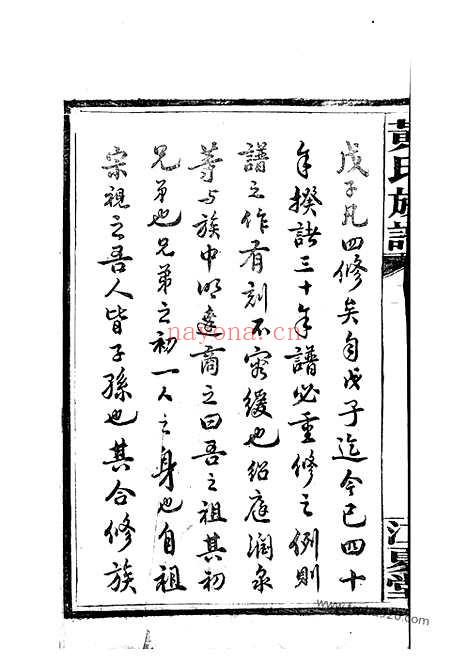 黃氏族譜
江夏堂
戊子凡四修矣自戊子迄今已四十
年揆諸三十年譜必重修之例則
譜之作有刻不容緩也紹庭潤泉
等与族中明達商之曰吾之祖其初
兄弟也兄弟之初一人之身也自祖
宗視之吾人皆子孫也其合修族
nayona.cn